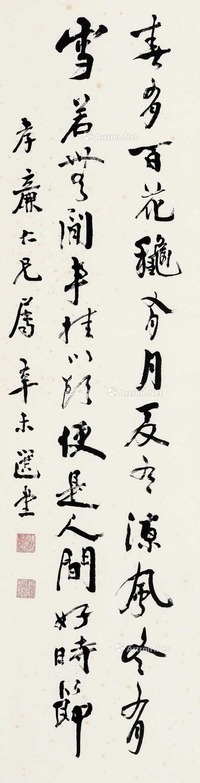 春有百花龝有月夏有涼風冬有
雪若無閒事挂心頭便是人間好時節
孝廉仁兄属辛未選堂